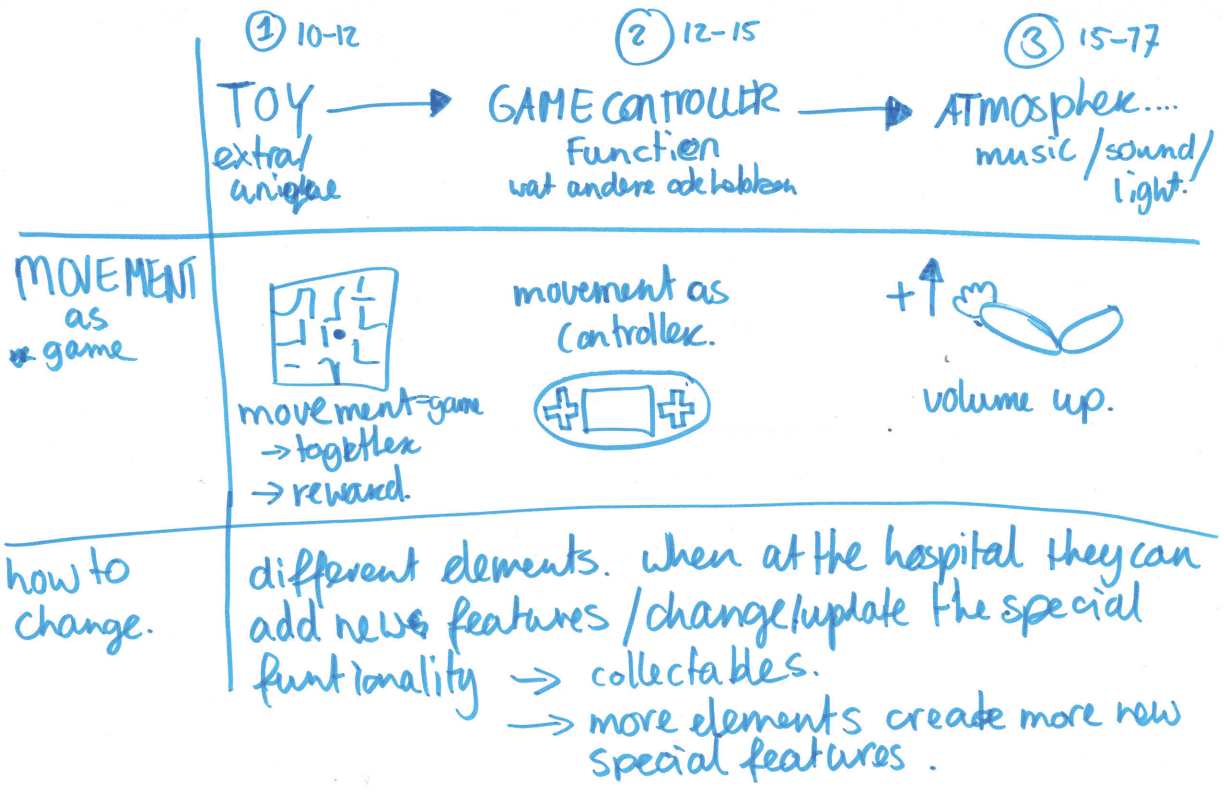 ① 10-12
② 12-15
③ 15-17
TOY → GAME CONTROLLER → ATmosphere....
extra/
unique
Function
wat andere ook hebben
music / sound /
light.
MOVEMENT
as
game
movement=game
→ together
→ reward.
movement as
controller.
+↑
volume up.
how to
change.
different elements. when at the hospital they can
add news features / change/update the special
funtionality → collectables.
→ more elements create more new
special features.